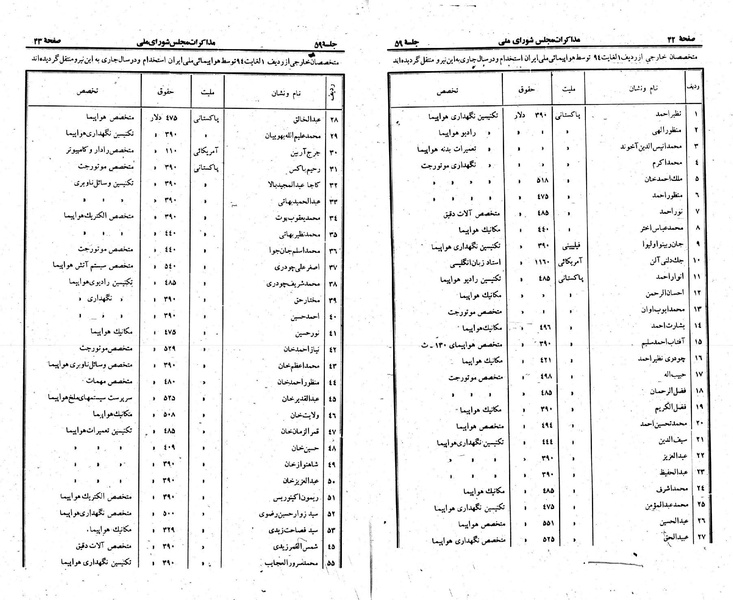 صفحهٔ ۲۲ مذاکرات مجلس شورای ملی جلسهٔ ۵۹
متخصصان خارجی از ردیف ۱ لغایت ۹۴ توسط هواپیمائی ملی ایران استخدام و در سال جاری به این نیرو منتقل گردیده‌اند
ردیف نام و نشان ملیت حقوق تخصص
۱ نظیر احمد پاکستانی ۳۹۰ دلار تکنیسین نگهداری هواپیما
۲ منظور الهی » ۳۹۰ » » رادیو هواپیما
۳ محمد انیس الدین آخوند » » » » تعمیرات بدنه هواپیما
۴ محمد اکرم » » » » نگهداری موتورجت
۵ ملک احمدخان » ۵۱۸ » » » »
۶ منظور احمد » ۴۷۵ » » » »
۷ نور احمد » ۴۸۵ » متخصص آلات دقیق
۸ محمد عباس اختر » ۴۴۰ » مکانیک هواپیما
۹ جان رینو اولیوا فیلیپینی ۳۹۰ » تکنیسین نگهداری هواپیما
۱۰ جک دلنی آلن آمریکائی ۱۱۶۰ » استاد زبان انگلیسی
۱۱ انوار احمد پاکستانی ۴۸۵ » تکنیسین رادیو هواپیما
۱۲ احسان الرحمن » » » مکانیک هواپیما
۱۳ محمد ایوب اوان » » » متخصص موتورجت
۱۴ بشارت احمد » ۴۹۶ » مکانیک هواپیما
۱۵ آفتاب احمد سلیم » ۳۹۰ » متخصص هواپیمای ۱۳۰ـ ث
۱۶ چودری نظیر احمد » ۴۲۱ » مکانیک هواپیما
۱۷ حبیب اله » ۴۹۸ » متخصص موتورجت
۱۸ فضل الرحمان » ۴۸۵ » » »
۱۹ فضل الکریم » ۳۹۰ » مکانیک هواپیما
۲۰ محمد تحسین احمد » ۴۹۴ » متخصص هواپیما
۲۱ سیف الدین » ۴۴۴ » تکنیسین نگهداری هواپیما
۲۲ عبدالعزیز » ۳۹۰ » » » »
۲۳ عبدالحفیظ » ۳۹۰ » » » »
۲۴ محمد اشرف » ۴۸۵ » مکانیک هواپیما
۲۵ محمد عبدالمؤمن » ۴۷۵ » تکنیسین نگهداری هواپیما
۲۶ عبدالحسین » ۵۵۱ » متخصص هواپیما
۲۷ عبدالحق » ۵۲۵ » متخصص نگهداری هواپیما
جلسهٔ ۵۹ مذاکرات مجلس شورای ملی صفحهٔ ۲۳
متخصصان خارجی از ردیف ۱ لغایت ۹۴ توسط هواپیمائی ملی ایران استخدام و در سال جاری به این نیرو منتقل گردیده‌اند
ردیف نام و نشان ملیت حقوق تخصص
۲۸ عبدالخالق پاکستانی ۴۷۵ دلار متخصص هواپیما
۲۹ محمد علیم الله بهوییان » ۳۹۰ » تکنیسین نگهداری هواپیما
۳۰ جرج آربین آمریکائی ۱۱۰ » متخصص رادار و کامپیوتر
۳۱ رحیم باکس پاکستانی ۳۹۰ » متخصص موتورجت
۳۲ کاجا عبدالمجید بالا » ۳۹۰ » تکنیسین وسائل ناوبری
۳۳ عبدالحمید بهاتی » ۳۹۰ » » » »
۳۴ محمد یعقوب بوت » ۳۹۰ » متخصص الکتریک هواپیما
۳۵ محمد نظیر بهاتی » ۴۴۰ » » » »
۳۶ محمد اسلم جان جوا » ۴۴۰ » متخصص موتورجت
۳۷ اصغر علی چودری » ۵۴۰ » متخصص سیستم آتش هواپیما
۳۸ محمد شریف چودری » ۴۸۵ » تکنیسین رادیوی هواپیما
۳۹ مختار حق » ۳۹۰ » » نگهداری »
۴۰ احمد حسین » ۳۹۰ » » » »
۴۱ نور حسین » ۴۷۵ » مکانیک هواپیما
۴۲ نیاز احمد خان » ۵۲۹ » متخصص موتورجت
۴۳ محمد اعظم خان » ۳۹۰ » متخصص وسائل ناوبری هواپیما
۴۴ منظور احمد خان » ۴۸۰ » متخصص مهمات
۴۵ عبدالقدیر خان » ۵۲۵ » سرپرست سیستمهای ملخ هواپیما
۴۶ ولایت خان » ۵۰۸ » مکانیک هواپیما
۴۷ قمر الزمان خان » ۴۸۵ » تکنیسین تعمیرات هواپیما
۴۸ حسین خان » ۴۰۹ » » » »
۴۹ شاهنواز خان » ۳۹۰ » » » »
۵۰ عبدالعزیز خان » ۳۹۰ » » » »
۵۱ ریمون اکیتوریس » ۳۹۰ » متخصص الکتریک هواپیما
۵۲ سید زوار حسین رضوی » ۵۰۰ » متخصص نگهداری هواپیما
۵۳ سید فصاحت زیدی » ۳۲۹ » مکانیک هواپیما
۴۵ شمس القمر زیدی » ۳۹۰ » متخصص آلات دقیق
۵۵ محمد سرور العجایب » ۳۹۰ » تکنیسین نگهداری هواپیما